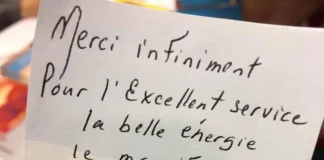 Merci infiniment
Pour l'Excellent service
la belle énergie
le